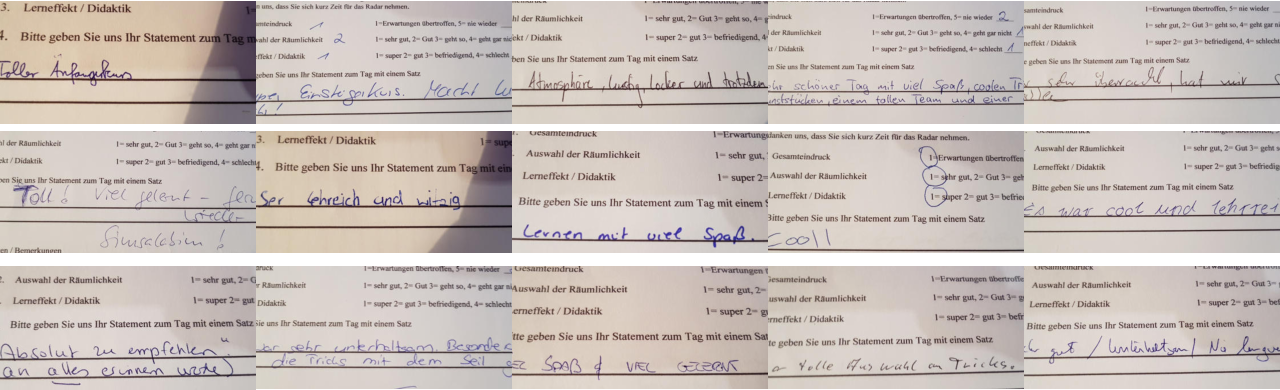 3. Lerneffekt / Didaktik
4. Bitte geben Sie uns Ihr Statement zum Tag
Toller Anfangskurs
uns, dass Sie sich kurz Zeit für das Radar nehmen.
amteindruck 1 1=Erwartungen übertroffen, 5= nie wieder
wahl der Räumlichkeit 2 1= sehr gut, 2= Gut 3= geht so, 4= geht gar nic
ffekt / Didaktik 1 1= super 2= gut 3= befriedigend, 4= schlecht
geben Sie uns Ihr Statement zum Tag mit einem Satz
Einstigerkurs. Macht
hl der Räumlichkeit 1= sehr gut, 2= Gut 3= geht so, 4= g
ekt / Didaktik 1= super 2= gut 3= befriedigend,
ben Sie uns Ihr Statement zum Tag mit einem Satz
Atmosphäre, lustig, locker und trotzdem
indruck 1=Erwartungen übertroffen, 5= nie wieder 2
der Räumlichkeit 1= sehr gut, 2= Gut 3= geht so, 4= geht gar nicht 1
t / Didaktik 1= super 2= gut 3= befriedigend, 4= schlecht 1
Sie uns Ihr Statement zum Tag mit einem Satz
hr schöner Tag mit viel Spaß, coolen Tr
nststücken, einem tollen Team und einer
samteindruck 1=Erwartungen übertroffen, 5= nie wieder
swahl der Räumlichkeit 1= sehr gut, 2= Gut 3= geht so, 4= geht gar ni
neffekt / Didaktik 1= super 2= gut 3= befriedigend, 4= schlecht
e geben Sie uns Ihr Statement zum Tag mit einem Satz
sehr überrascht, hat mir
l der Räumlichkeit 1= sehr gut, 2= Gut 3= geht so, 4= geht gar n
kt / Didaktik 1= super 2= gut 3= befriedigend, 4= schlecht
en Sie uns Ihr Statement zum Tag mit einem Satz
Toll! Viel gelernt - gern
wieder
Simsalabim!
en / Bemerkungen
3. Lerneffekt / Didaktik 1= supe
4. Bitte geben Sie uns Ihr Statement zum Tag mit ein
Ser lehreich und witzig
Gesamteindruck 1=Erwartungs
Auswahl der Räumlichkeit 1= sehr gut,
Lerneffekt / Didaktik 1= super 2=
Bitte geben Sie uns Ihr Statement zum Tag mit einem S
Lernen mit viel Spaß.
danken uns, dass Sie sich kurz Zeit für das Radar nehmen.
Gesamteindruck 1=Erwartungen übertroffen
Auswahl der Räumlichkeit 1= sehr gut, 2= Gut 3= ge
Lerneffekt / Didaktik 1= super 2= gut 3= befrie
Bitte geben Sie uns Ihr Statement zum Tag mit einem Satz
Cooll
Auswahl der Räumlichkeit 1= sehr gut, 2= Gut 3= geht s
Lerneffekt / Didaktik 1= super 2= gut 3= befriedige
Bitte geben Sie uns Ihr Statement zum Tag mit einem Satz
Es war cool und lehrrei
2. Auswahl der Räumlichkeit 1= sehr gut, 2= G
Lerneffekt / Didaktik 1= super 2= gut
Bitte geben Sie uns Ihr Statement zum Tag mit einem Satz
Absolut zu empfehlen."
an alles
druck 1=Erwartungen übertroffen, 5= nie wieder
r Räumlichkeit 1= sehr gut, 2= Gut 3= geht so, 4= geht gar ni
Didaktik 1= super 2= gut 3= befriedigend, 4= schlecht
Sie uns Ihr Statement zum Tag mit einem Satz
ar sehr unterhaltsam. Besonders
die Tricks mit dem Seil
Gesamteindruck 1=Erwartungen ü
Auswahl der Räumlichkeit 1= sehr gut, 2=
erneffekt / Didaktik 1= super 2= g
tte geben Sie uns Ihr Statement zum Tag mit einem
SPAß & VIEL GELERNT
esamteindruck 1=Erwartungen übertroffe
uswahl der Räumlichkeit 1= sehr gut, 2= Gut 3= g
rneffekt / Didaktik 1= super 2= gut 3= befr
te geben Sie uns Ihr Statement zum Tag mit einem Satz
tolle Auswahl an Tricks.
Auswahl der Räumlichkeit 1= sehr gut, 2= Gut 3=
Lerneffekt / Didaktik 1= super 2= gut 3= bef
Bitte geben Sie uns Ihr Statement zum Tag mit einem Satz
gut / Unterhaltsam / No